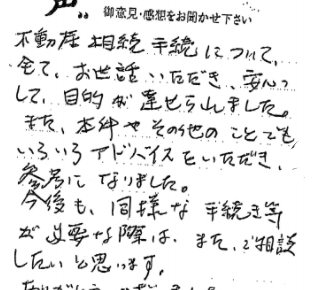 声
御意見・感想をお聞かせ下さい
不動産相続手続について、
全て、お世話いただき、安心
して、目的が達せられました。
また、本件やその他のことでも
いろいろアドバイスをいただき、
参考になりました。
今後も、同様な手続き等
が必要な際は、また、ご相談
したいと思います。
ありがとうございました